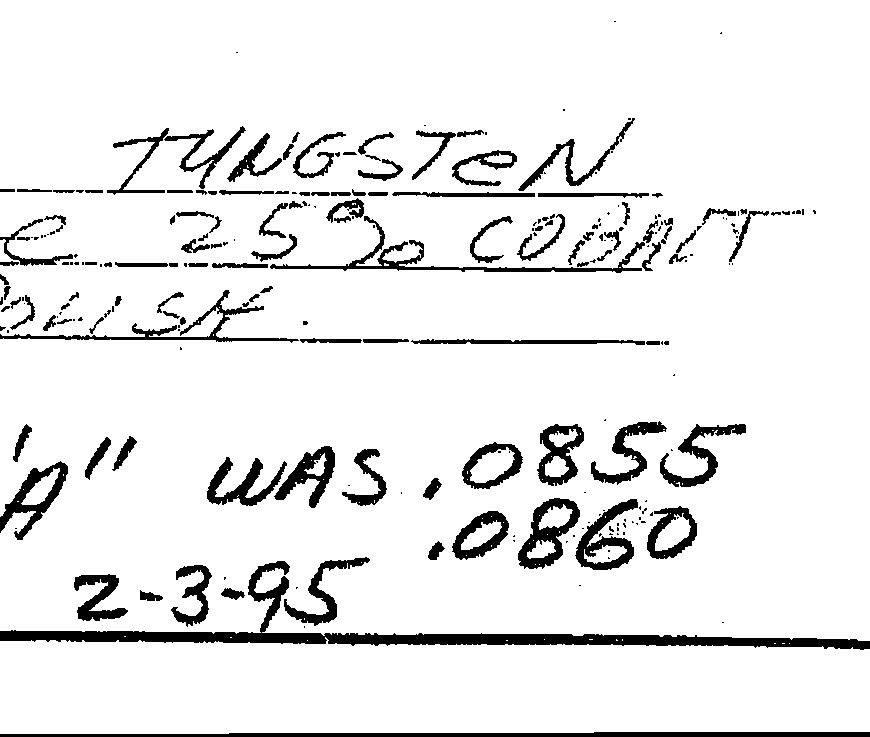 TUNGSTEN
e 25% COBALT
POLISH
"A" WAS .0855
.0860
2-3-95